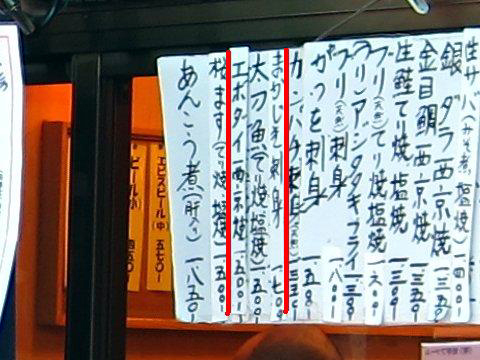 生サバ(みそ煮 塩焼)一四〇〇-
銀ダラ西京焼
金目鯛西京焼 一三五〇-
生鮭てり焼塩焼 一三五〇-
ブリ(天然)てり焼塩焼
アジタタキフライ 一三〇〇-
ブリ(天然)刺身 一八〇〇-
かつを刺身 一五〇〇-
カンパチ刺身(天然)
まかじき刺身 一七〇〇-
太刀魚(てり焼 塩焼)一五〇〇-
エボダイ西京焼 一五〇〇-
桜ます(てり焼 塩焼)一五〇〇-
あんこう煮(肝入)一八五〇-
エビスビール(中)五七〇-
ビール(小)四五〇